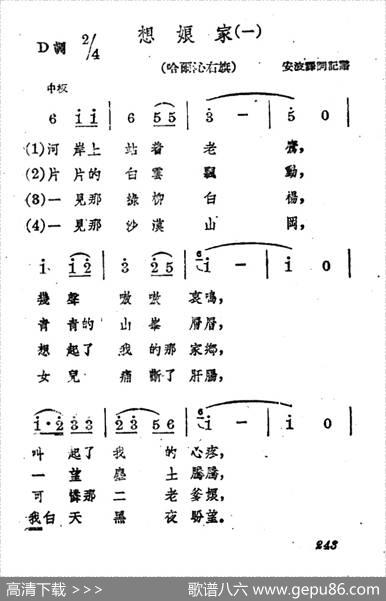 想娘家(一)
D調 2/4
(哈爾沁右旗) 安波譯詞記譜
中板
6 i i | 6 5 5 | 3 — | 5 0 |
(1)河岸上站着老鷹,
(2)片片的白雲飄動,
(3)一見那綠柳白楊,
(4)一見那沙漠山岡,
i i 2 | 3 2 5 | 6 i — | i 0 |
幾聲嗷嗷哀鳴,
青青的山峯層層,
想起了我的那家鄉,
女兒痛斷了肝腸,
i·2 3 3 | 2 3 5 6 | 6 i — | i 0 |
叫起了我的心疼,
一望塵土騰騰,
可憐那二老爹娘,
我白天黑夜盼望。
243
高清下载 >>>
歌谱八六 www.gepu86.com